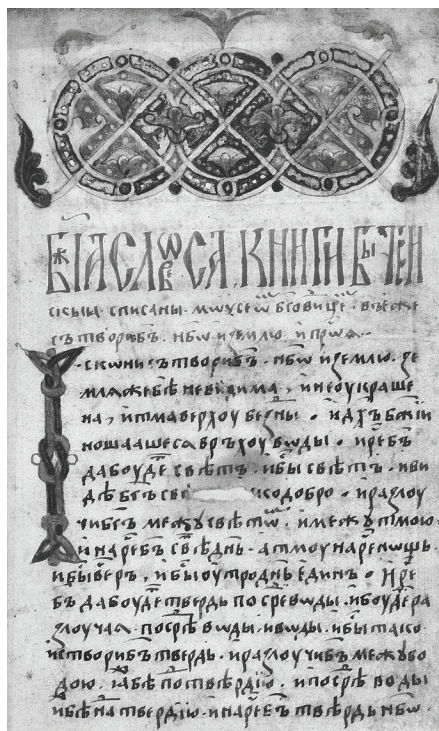 сїисыа списаны мѡѵсеѡ҃ бг҃овице҃ въеже
сътворибъ нб҃ѡ и҆ землю и҆ прⷪ҇ѡа
Искони сътворибъ нб҃ѡ и҆ землю зе
млѧ же бѣ невидима и҆ неоукраше
на и҆ тма верхоу безⷣны и҆ дх҃ъ бж҃їи
ношаашесѧ връхоу вѡды и҆ ре҃ бъ
да боуде҃ свѣтъ и҆ бы҃ свѣтъ и҆ ви
дѣ бг҃ъ свѣ ꙗкодобро и҆ разлоу
чи бг҃ъ межꙋ свѣтѡ҃ и҆ межꙋ тмою
и҆ наре҃ бъ свѣ҃ днь҃ а тмоу наре҃ нѡщь
и҆ бы҃ веⷱ҇ръ и҆ бы҃ оутро днь҃ единъ И҆ ре҃
бъ да боуде҃ твердь посре҃ вѡды и҆ боуде҃ ра
злоучаѧ посре҃ вѡды и҆ вѡды и҆ бы҃ тако
и҆ створи бъ твердь и҆ разлоучи бъ межꙋ во
дою ꙗ҆же бѣ по твердїю и҆ посре҃ воды
и҆бѣ на твердїю и҆ наре҃ бъ твѣрдь нб҃ѡ